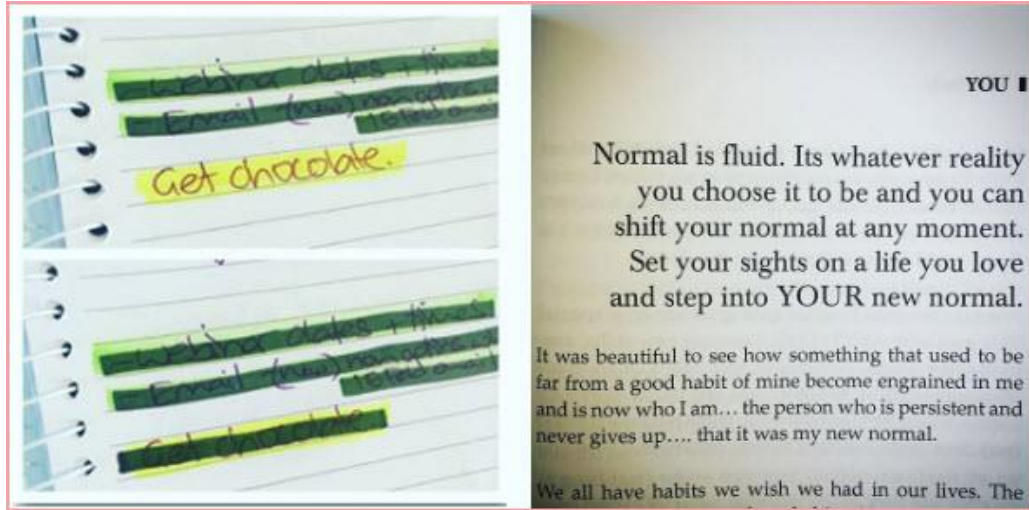 - Webina dates + times
- Email (new)
Get chocolate.
- Webina dates + times
- Email (new)
Get chocolate
YOU
Normal is fluid. Its whatever reality
you choose it to be and you can
shift your normal at any moment.
Set your sights on a life you love
and step into YOUR new normal.
It was beautiful to see how something that used to be
far from a good habit of mine become engrained in me
and is now who I am... the person who is persistent and
never gives up.... that it was my new normal.
We all have habits we wish we had in our lives. The